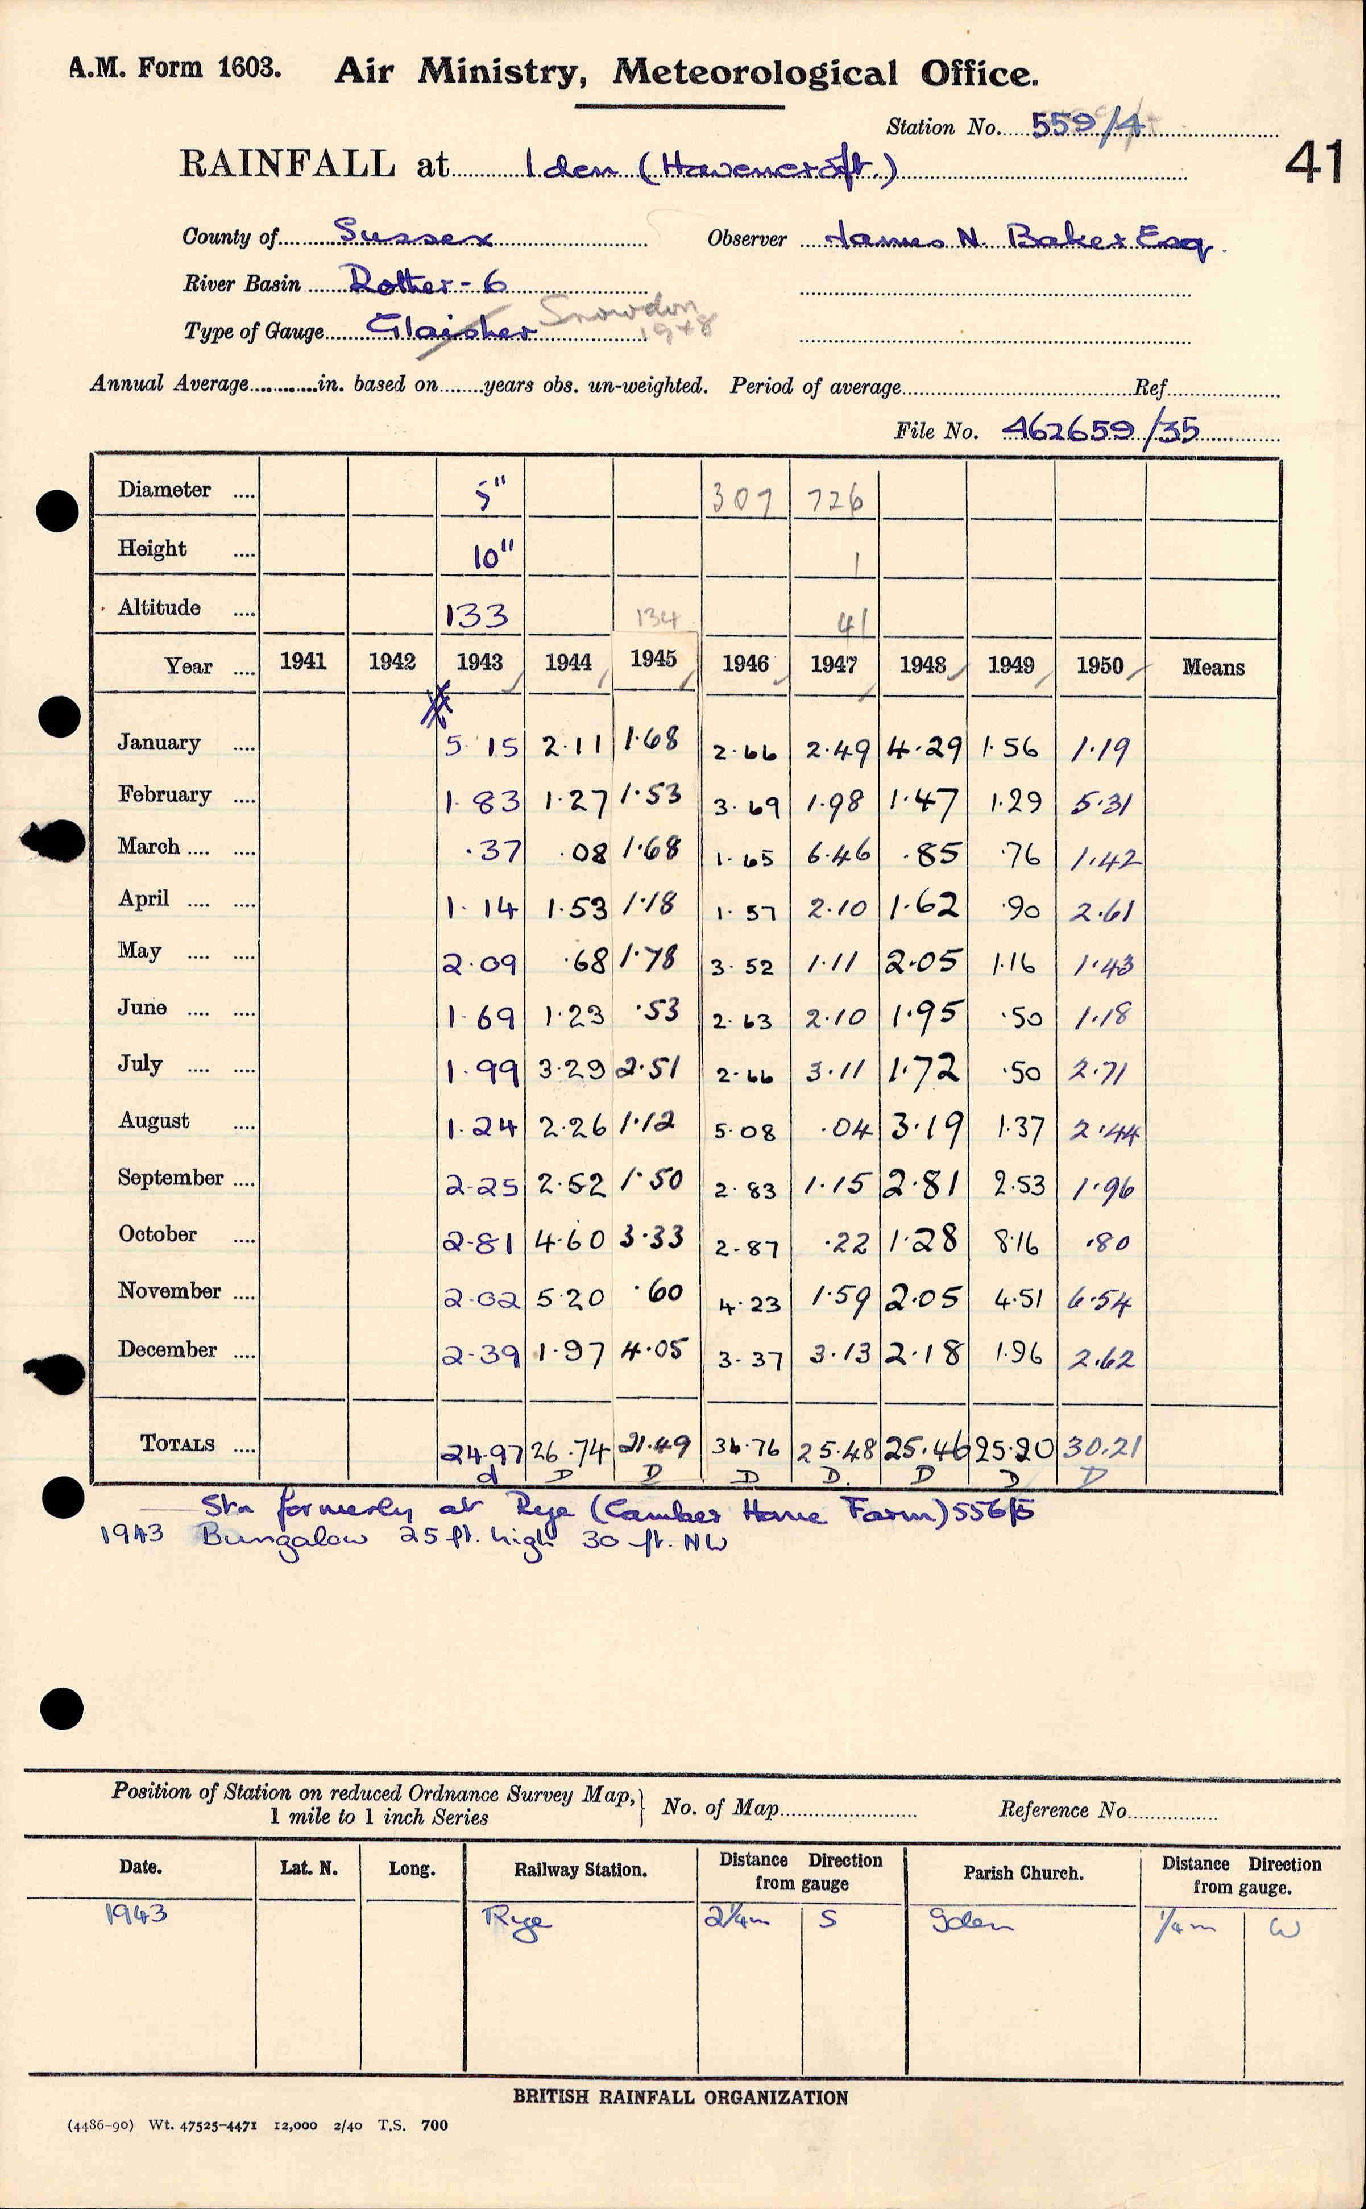 A.M. Form 1603. Air Ministry, Meteorological Office.
Station No. 559/4
41
RAINFALL at Iden (Havencroft.)
County of Sussex Observer James N. Baker Esq.
River Basin Rother-6
Type of Gauge Glaisher Snowdon 1948
Annual Average............in. based on.......years obs. un-weighted. Period of average Ref.
File No. 462659/35
Diameter .... 5" 307 726
Height .... 10" 1
Altitude .... 133 134 41
Year .... 1941 1942 1943 1944 1945 1946 1947 1948 1949 1950 Means
January .... 5.15 2.11 1.68 2.66 2.49 4.29 1.56 1.19
February .... 1.83 1.27 1.53 3.69 1.98 1.47 1.29 5.31
March .... .... .37 .08 1.68 1.65 6.46 .85 .76 1.42
April .... .... 1.14 1.53 1.18 1.57 2.10 1.62 .90 2.61
May .... .... 2.09 .68 1.78 3.52 1.11 2.05 1.16 1.43
June .... .... 1.69 1.23 .53 2.63 2.10 1.95 .50 1.18
July .... .... 1.99 3.29 2.51 2.66 3.11 1.72 .50 2.71
August .... 1.24 2.26 1.12 5.08 .04 3.19 1.37 2.44
September .... 2.25 2.52 1.50 2.83 1.15 2.81 2.53 1.96
October .... 2.81 4.60 3.33 2.87 .22 1.28 8.16 .80
November .... 2.02 5.20 .60 4.23 1.59 2.05 4.51 6.54
December .... 2.39 1.97 4.05 3.37 3.13 2.18 1.96 2.62
TOTALS .... 24.97 26.74 21.49 36.76 25.48 25.46 25.20 30.21
d D D D D. D D D
Stn formerly at Rye (Camber Home Farm) 556/5
1943 Bungalow 25 ft. high 30 ft. NW
Position of Station on reduced Ordnance Survey Map, 1 mile to 1 inch Series } No. of Map Reference No.
Date. Lat. N. Long. Railway Station. Distance Direction from gauge Parish Church. Distance Direction from gauge.
1943 Rye 2¼m S Iden ¼m W
BRITISH RAINFALL ORGANIZATION
(4486-90) Wt. 47525-4471 12,000 2/40 T.S. 700